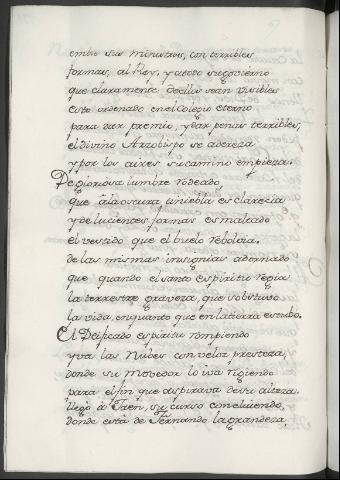 embie sus ministros, con terribles
formas, al Rey, y atodo sugovierno
que claramente deellos sean visibles
esto ordenado en el Colegio eterno
para dar premio, y dar penas terribles,
el divino Arzobispo se adereza
y por los aires su camino empieza.
De gloriosa lumbre rodeado,
que âla oscura tiniebla es clarecia
y de lucientes formas esmaltado
el vestido que el buelo rebolvia,
de las mismas insignias adornado
que quando el santo espiritu regia
la terrestre graveza, que sobstuvo
la vida, enquanto que en latierra estubo.
El Deificado espiritu rompiendo
yva las Nubes con veloz presteza,
donde su Movedor lo iva rigiendo
para el fin que aspirava de su alteza.
llegò à Jaen, su curso concluiendo,
donde està de Fernando la grandeza,